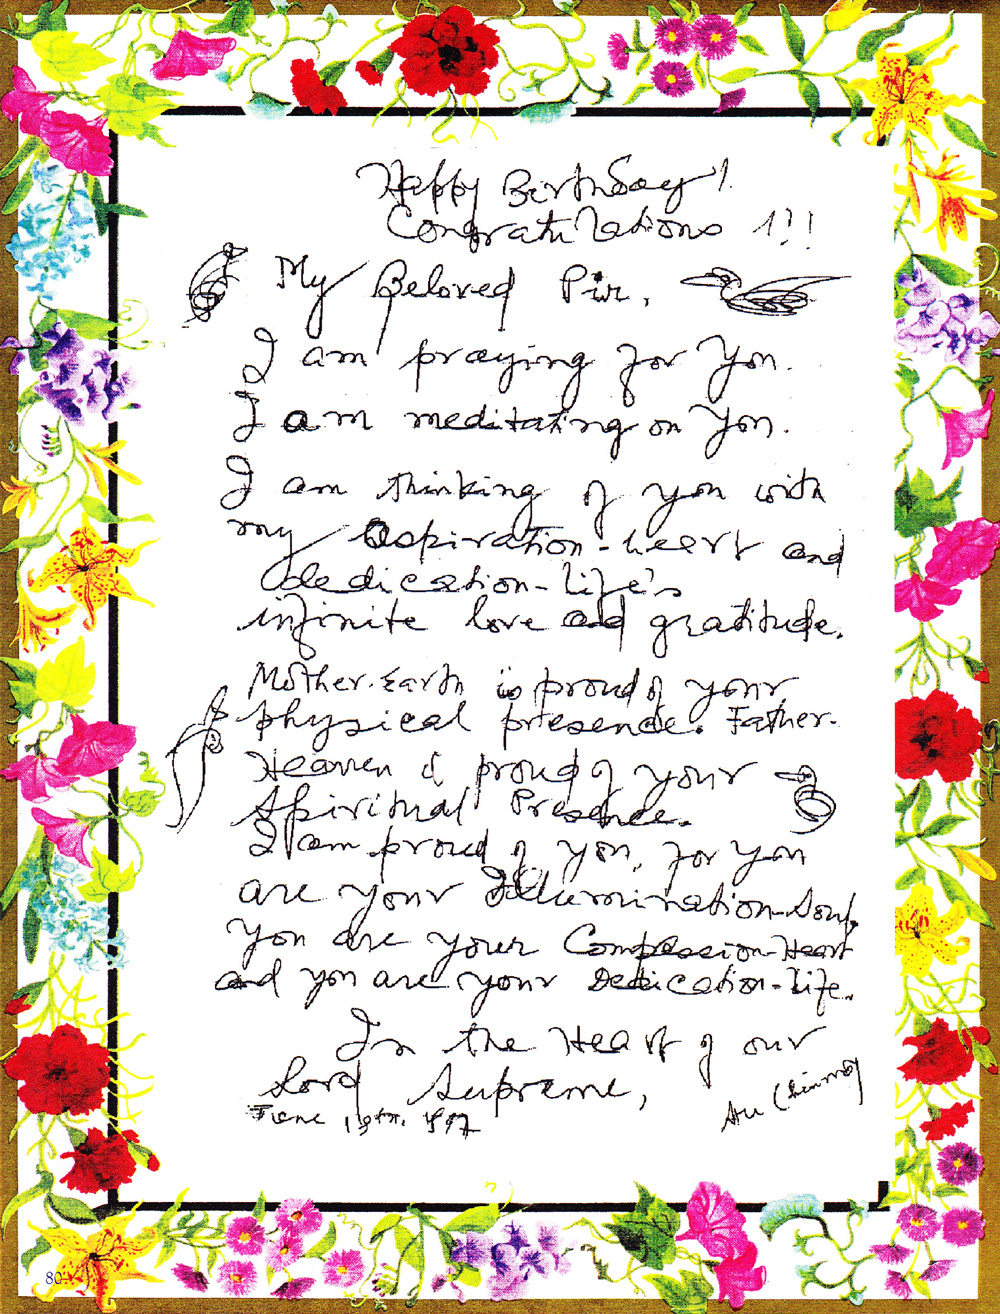 Happy Birthday!
Congratulations !!!
My Beloved Pir,
I am praying for you.
I am meditating on you.
I am thinking of you with
my aspiration-heart and
dedication-life's
infinite love and gratitude.
Mother-Earth is proud of your
physical presence. Father-
Heaven is proud of your
Spiritual Presence.
I am proud of you, for you
are your Illumination-Soul,
You are your Compassion-Heart
and you are your Dedication-life.
In the Heart of our
Lord Supreme,
June 19th, 
Chinmoy
80